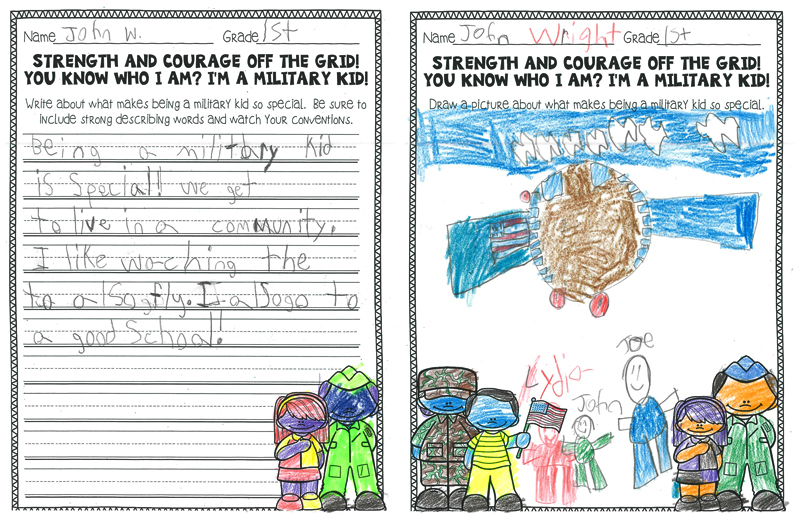 Name John W. Grade 1st
STRENGTH AND COURAGE OFF THE GRID!
YOU KNOW WHO I AM? I'M A MILITARY KID!
Write about what makes being a military kid so special. Be sure to
include strong describing words and watch your conventions.
Being a military Kid
is Special! We get
to live in a community.
I like waching the
to a lSogfly. I alSogo to
a good School!
Name John Wright Grade 1st
STRENGTH AND COURAGE OFF THE GRID!
YOU KNOW WHO I AM? I'M A MILITARY KID!
Draw a picture about what makes being a military kid so special.
Lydia
John
Joe